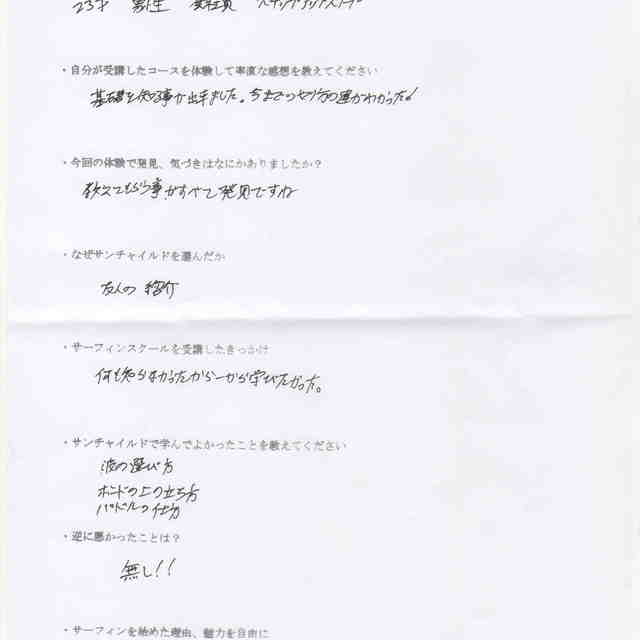 23才 男性 会社員
・自分が受講したコースを体験して率直な感想を教えてください
基礎を知る事が出来ました。今までのやり方の違がわかった!
・今回の体験で発見、気づきはなにかありましたか?
教えてもらう事がすべて発見ですね
・なぜサンチャイルドを選んだか
友人の紹介
・サーフィンスクールを受講したきっかけ
何も知らなかったから一から学びたかった。
・サンチャイルドで学んでよかったことを教えてください
波の選び方
ボードの上の立ち方
パドルの仕方
・逆に悪かったことは?
無し!!
・サーフィンを始めた理由、魅力を自由に